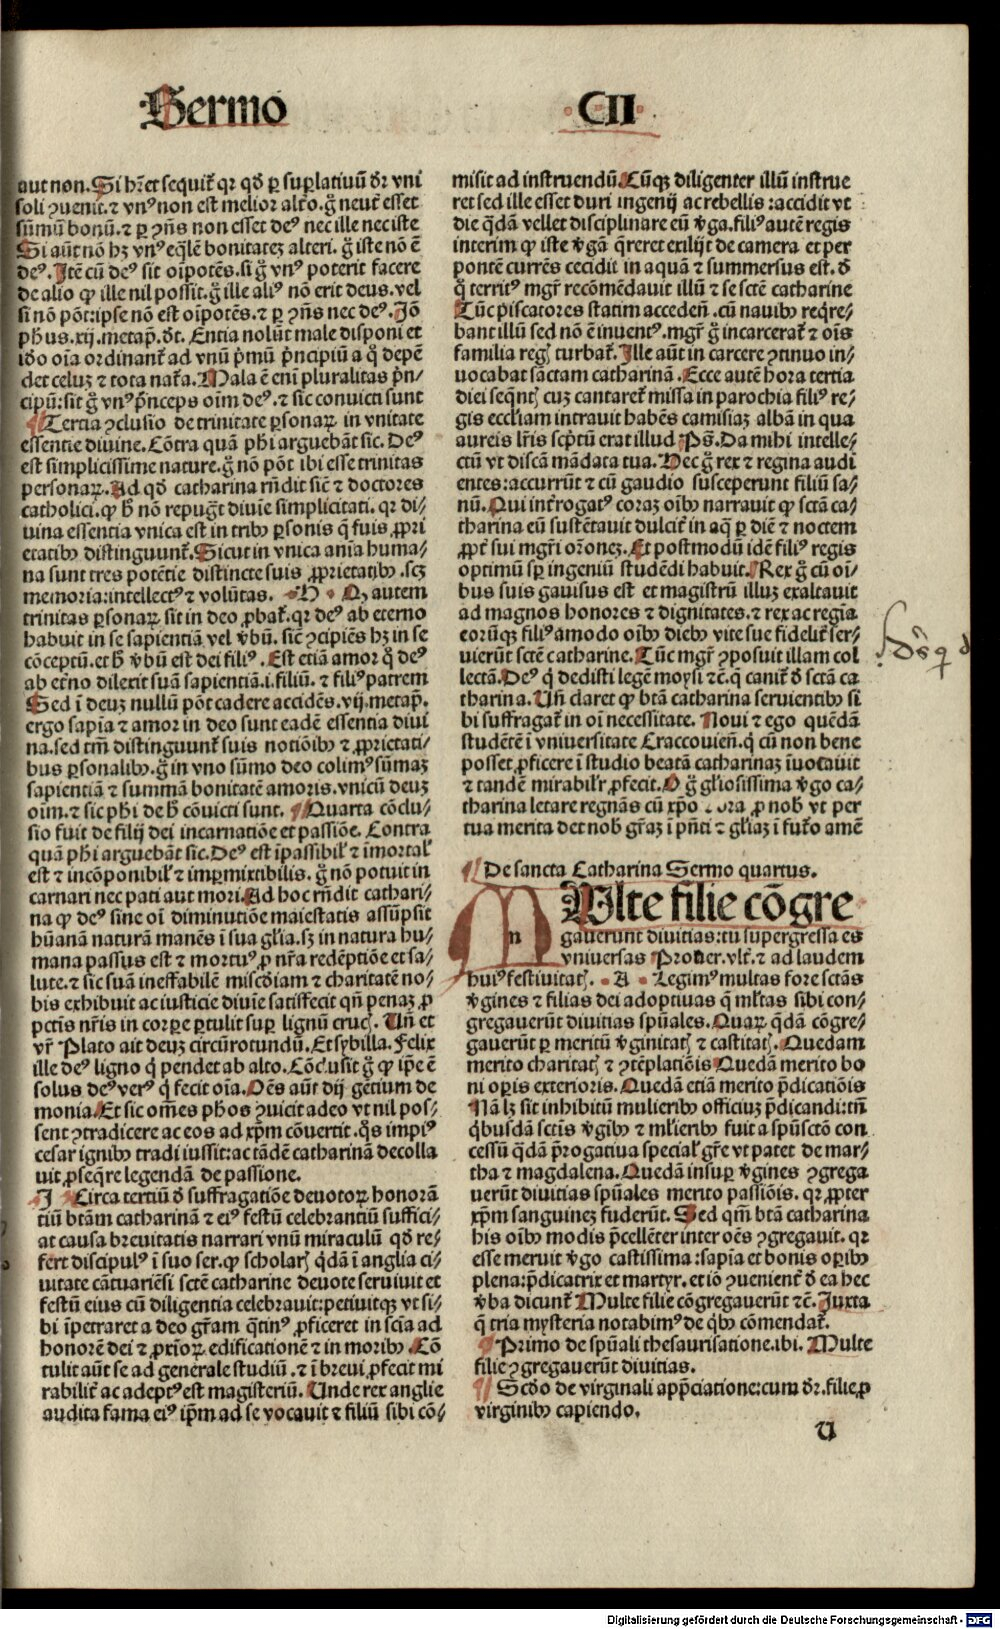 Sermo
CII
aut non. Si hr̄ et sequit̄ qr qd̄ ꝑ suꝑlatiuū dr̄ vni
soli ꝯuenit. ⁊ vnꝰ non est melior alt̄o. g̊ neut̄ esset
sūmū bonū. ⁊ ꝑ ꝯn̄s non esset deꝰ nec ille nec iste
Si aūt non hꝫ vnꝰ eq̄lē bonitateꝫ alteri. g̊ iste nō ē
deꝰ. Itē cū deꝰ sit oīpotēs. si g̊ vnꝰ poterit facere
de alio ꝙ ille nil possit. g̊ ille aliꝰ nō erit deus. vel
si nō pōt: ipse nō est oīpotēs. ⁊ ꝑ ꝯn̄s nec deꝰ. Iō
ph̄us. xij. metap̄. dt̄. Entia nolūt male disponi et
id̄o oīa ordinant̄ ad vnū p̄mū p̄ncipiū a q̊ depē
det celuꝫ ⁊ tota nat̄a. Mala ē eni pluralitas p̄n⸗
cipū: sit g̊ vnꝰ p̄nceps oīm deꝰ. ⁊ sic conuicti sunt
¶ Tertia ꝯclusio de trinitate ꝑsonaꝝ in vnitate
essentie diuine. Cōtra quā ph̄i arguebāt sic. Deꝰ
est simplicissime nature. g̊ nō pōt ibi esse trinitas
personaꝝ. Ad qd̄ catharina rn̄dit sic̄ ⁊ doctores
catholici. ꝙ h̄ nō repuḡt diuīe simplicitati. qr di⸗
uina essentia vnica est in tribꝰ ꝑsonis q̄ suis ꝓpri
etatibꝰ distinguunt̄. Sicut in vnica anīa huma⸗
na sunt tres potētie distincte suis ꝓprietatibꝰ. scꝫ
memoria: intellectꝰ ⁊ volūtas. H Qꝫ autem
trinitas ꝑsonaꝝ sit in deo ꝓbat̄. qr deꝰ ab eterno
habuit in se sapientiā vel v̄bū. sic̄ ꝯcipiēs hꝫ in se
cōceptū. et h̄ v̄bū est dei filiꝰ. Est etiā amor q̊ deꝰ
ab et̄no dilexit suā sapientiā. i. filiū. ⁊ filiꝰ patrem
Sed ī deuꝫ nullū pōt cadere accidēs. vij. metap̄.
ergo sapīa ⁊ amor in deo sunt eadē essentia diui
na. sed tm̄ distinguunt̄ suis notiōibꝰ ⁊ ꝓprietati⸗
bus ꝑsonalibꝰ. g̊ in vno sūmo deo colimꝰ sūmaꝫ
sapientiā ⁊ summā bonitatē amoris. vnicū deuꝫ
oīm. ⁊ sic ph̄i de h̄ cōuicti sunt. ¶ Quarta cōclu⸗
sio fuit de filij dei incarnatiōe et passiōe. Contra
quā ph̄i arguebāt sic. Deꝰ est īpassibil̄ ⁊ īmortal̄
est ⁊ incōponibil̄ ⁊ imꝑmixtibilis. g̊ nō potuit in
carnari nec pati aut mori. Ad hoc rn̄dit cathari⸗
na ꝙ deꝰ sine oī diminutiōe maiestatis assūpsit
hūanā naturā manēs ī sua gl̄ia. sꝫ in natura hu⸗
mana passus est ⁊ mortuꝰ ꝓ nr̄a redēptiōe et sa⸗
lute. ⁊ sic suā ineffabilē misc̄diam ⁊ charitatē no⸗
bis exhibuit ac iusticie diuīe satisfecit qn̄ penaꝫ ꝓ
pctīs nr̄is in corꝑe ꝑtulit suꝑ lignū crucꝭ. Un̄ et
vr̄ Plato ait deuꝫ circūrotundū. Et sybilla. Felix
ille deꝰ ligno q̄ pendet ab alto. Cōc̄usit g̊ ꝙ ip̄e ē
solus deꝰ verꝰ q̄ fecit oīa. Oēs aūt dij gētium de
monia. Et sic om̄es ph̄os ꝯuicit adeo vt nil pos⸗
sent ꝯtradicere ac eos ad xp̄m cōuertit. q̊s impiꝰ
cesar ignibꝰ tradi iussit: ac tādē catharinā decolla
uit. ꝓseq̄re legendā de passione.
I Circa tertiū d̄ suffragatiōe deuotoꝝ honorā
tiū btām catharinā ⁊ eiꝰ festū celebrantiū suffici⸗
at causa breuitatis narrari vnū miraculū qd̄ re⸗
fert discipulꝰ ī suo ser. ꝙ scholarꝭ q̄dā ī anglia ci⸗
uitate cātuariēsi scte catharine deuote seruiuit et
festū eius cū diligentia celebrauit: petiuitqꝫ vt si⸗
bi īpetraret a deo gr̄am q̄tinꝰ ꝓficeret in scīa ad
honorē dei ⁊ ꝓxioꝝ edificationē ⁊ in moribꝰ. Cō
tulit aūt se ad generale studiū. ⁊ ī breui ꝓfecit mi
rabilit̄ ac adeptꝰ est magisteriū. Unde rex anglie
audita fama eiꝰ ip̄m ad se vocauit ⁊ filiū sibi cō⸗
misit ad instruendū. Cūqꝫ diligenter illū instrue
ret sed ille esset duri ingenij ac rebellis: accidit vt
die q̄dā vellet disciplinare eū v̄ga. filiꝰ autē regis
interim ꝙ iste v̄gā q̄reret exilijt de camera et per
pontē currēs cecidit in aquā ⁊ summersus est. d̄
q̊ territꝰ mgr̄ recōmēdauit illū ⁊ se sctē catharine
Tūc piscatores statim acceden̄. cū nauibꝰ req̄re⸗
bant illū sed nō ē inuentꝰ. mgr̄ g̊ incarcerat̄ ⁊ oīs
familia regꝭ turbat̄. Ille aūt in carcere ꝯtinuo in⸗
uocabat sāctam catharinā. Ecce autē hora tertia
diei seq̄ntꝭ cuꝫ cantaret̄ missa in parochia filiꝰ re⸗
gis eccl̄iam intrauit habēs camisiaꝫ albā in qua
aureis lr̄is sc̄ptū erat illud Ps̄. Da mihi intelle⸗
ctū vt discā mādata tua. Hec g̊ rex ⁊ regina audi
entes: accurrūt ⁊ cū gaudio susceperunt filiū sa⸗
nū. Qui int̄rogatꝰ coraꝫ oībꝰ narrauit ꝙ sctā ca⸗
tharina eū sustētauit dulcit̄ in aq̄ ꝑ diē ⁊ noctem
ꝓpt̄ sui mgr̄i or̄oneꝫ. Et postmodū idē filiꝰ regis
optimū suꝑ ingeniū studēdi habuit. Rex g̊ cū oī⸗
bus suis gauisus est et magistrū illuꝫ exaltauit
ad magnos honores ⁊ dignitates. ⁊ rex ac regīa
eorūqꝫ filiꝰ amodo oībꝰ diebꝰ vite sue fidelit̄ ser⸗
uierūt sctē catharine. Tūc mgr̄ ꝯposuit illam col
lectā. Deꝰ q̄ dedisti legē moysi ⁊c̄. q̄ canit̄ d̄ sctā ca
tharina. Un̄ claret ꝙ btā catharina seruientibꝰ si
bi suffragat̄ in oī necessitate. Noui ⁊ ego quēdā
studētē ī vniuersitate Craccouien̄. q̄ cū non bene
posset ꝓficere ī studio beatā catharinaꝫ īuocauit
⁊ tandē mirabilr̄ ꝓfecit. O g̊ gl̄iosissima v̄go ca⸗
tharina letare regnās cū xp̄o ora ꝓ nob̄ vt per
tua merita det nob̄ gr̄aꝫ ī pn̄ti ⁊ gl̄iaꝫ ī fut̄o amē
¶ De sancta Catharina Sermo quartus.
MUlte filie cōgre
n
gauerunt diuitias: tu supergressa es
vniuersas Prouer. vlt̄. ⁊ ad laudem
huiꝰ festiuitatꝭ. A Legimꝰ multas fore sctās
v̄gines ⁊ filias dei adoptiuas q̄ ml̄tas sibi con⸗
gregauerūt diuitias spūales. Quaꝝ q̄dā cōgre⸗
gauerūt ꝑ meritū v̄ginitatꝭ ⁊ castitatꝭ. Quedam
merito charitatꝭ ⁊ ꝯtēplatiōis Quedā merito bo
ni oꝑis exterioris. Quedā etiā merito p̄dicatiōis
Nā lꝫ sit inhibitū mulieribꝰ officiuꝫ p̄dicandi: tn̄
q̄busdā sctīs v̄gībꝰ ⁊ ml̄ieribꝰ fuit a spūsctō con
cessū q̄dā p̄rogatiua special̄ gr̄e vt patet de mar⸗
tha ⁊ magdalena. Quedā insuꝑ v̄gines ꝯgrega
uerūt diuitias spūales merito passiōis. qr ꝓpter
xp̄m sanguineꝫ fuderūt. Sed qm̄ btā catharina
his oībꝰ modis p̄cellēter inter oēs ꝯgregauit. qr
esse meruit v̄go castissima: sapīa et bonis oꝑibꝰ
plena: p̄dicatrix et martyr. et iō ꝯuenient̄ d̄ ea hec
v̄ba dicunt̄ Multe filie cōgregauerūt ⁊c̄. Juxta
q̄ tria mysteria notabimꝰ de q̄bꝰ cōmendat̄.
¶ Primo de spūali thesaurisatione. ibi. Multe
filie ꝯgregauerūt diuitias.
¶ Scd̄o de virginali app̄ciatione: cum dr̄. filie. ꝓ
virginibꝰ capiendo.
U
Digitalisierung gefördert durch die Deutsche Forschungsgemeinschaft - DFG